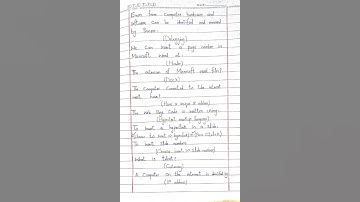 Errors from Computer hardware and
software can be identified and removed
by Process.
(Debugging)
We can insert a page number in
Microsoft word at.
(Header)
The extension of Microsoft word file?
(Docx)
The Computer Connected to the internet
must have!
(Have a unique IP address)
The web page Code is written using:
(Hypertext markup language)
To insert a hyperlink in a slide.
To insert slide number
(Choose insert >> Slide number)
What is
(Gateway)
A Computer on the internet is identified by
(IP address)